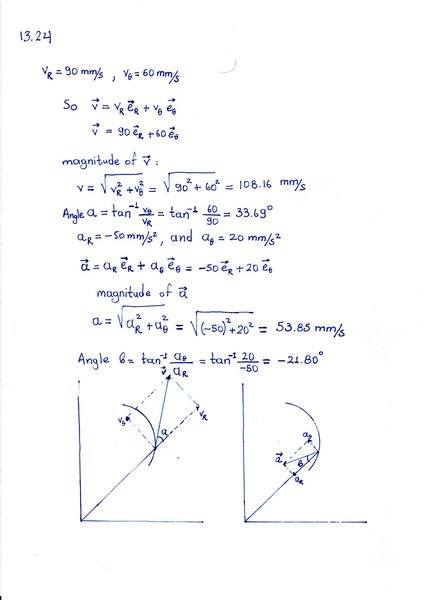 13.24
v_R = 90 mm/s , v_θ = 60 mm/s
So v⃗ = v_R e⃗_R + v_θ e⃗_θ
v⃗ = 90 e⃗_R + 60 e⃗_θ
magnitude of v⃗ :
v = √(v_R² + v_θ²) = √(90² + 60²) = 108.16 mm/s
Angle a = tan⁻¹ v_θ/v_R = tan⁻¹ 60/90 = 33.69°
a_R = -50 mm/s², and a_θ = 20 mm/s²
a⃗ = a_R e⃗_R + a_θ e⃗_θ = -50 e⃗_R + 20 e⃗_θ
magnitude of a⃗
a = √(a_R² + a_θ²) = √((-50)² + 20²) = 53.85 mm/s
Angle б = tan⁻¹ a_θ/a_R = tan⁻¹ 20/-50 = -21.80°
v⃗
v_θ
v_R
a
a_θ
a⃗
б
a_R